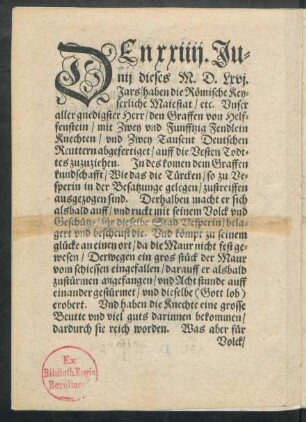 DEn xxiiij. Ju-
nij dieses M. D. Lxvj.
Jars/haben die Römische Key-
serliche Maiestat / etc. Vnser
aller gnedigster Herr/den Graffen von Helf-
fenstein / mit Zwey vnd Funfftzig Fendlein
Knechten / vnd Zwey Tausent Deutschen
Reuttern abgefertiget/auff die Vesten Todi-
tes zuzuziehen. In des komen dem Graffen
kundschafft / Wie das die Türcken/so zu Ve-
sperin in der Besatzunge gelegen/zustreiffen
ausgezogen sind. Derhalben macht er sich
alsbald auff/vnd ruckt mit seinem Volck vnd
Geschütz/für dieselbe Stad Vesperin/bela-
gert vnd bescheust die. Vnd kömpt zu seinem
glücke an einen ort/da die Maur nicht fest ge-
wesen / Derwegen ein gros stück der Maur
vom schiessen eingefallen/darauff er alsbald
zustürmen angefangen/vnd Acht stunde auff
einander gestürmet/vnd dieselbe (Gott lob)
erobert. Vnd haben die Knechte eine grosse
Beutte vnd viel guts darinnen bekommen/
dardurch sie reich worden. Was aber für
Volck/
Ex
Biblioth. Regia
Berolinensi